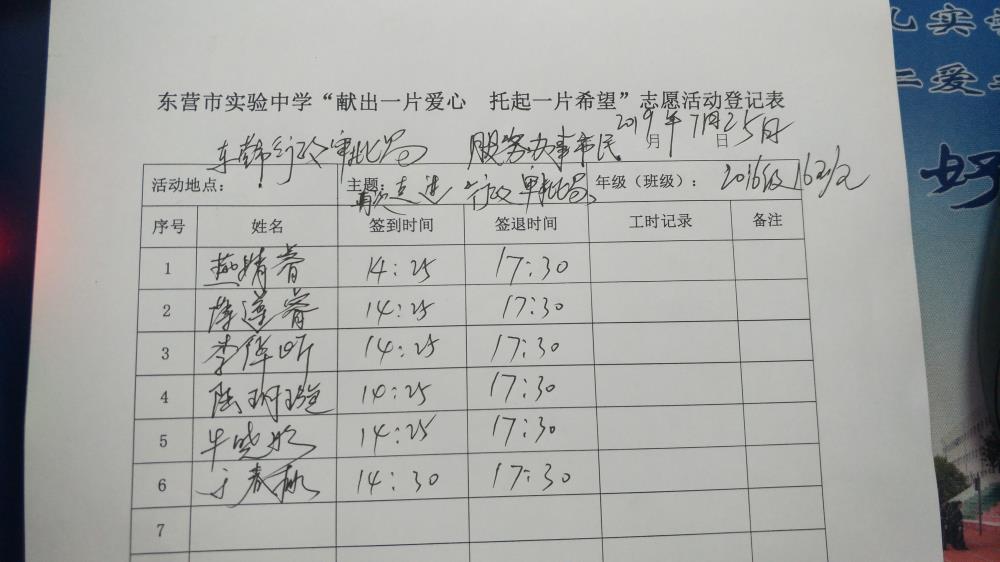 东营市实验中学“献出一片爱心 托起一片希望”志愿活动登记表
2019年7月25日
月 日
行政审批局 服务办事市民
活动地点: 主题: 走进行政审批局 年级(班级): 2016级16班
序号 姓名 签到时间 签退时间 工时记录 备注
1 燕婧睿 14:25 17:30
2 薛遵睿 14:25 17:30
3 李佯昕 14:25 17:30
4 陆玥璇 14:25 17:30
5 牛晓 14:25 17:30
6 于春秋 14:30 17:30
7
实
二爱
好